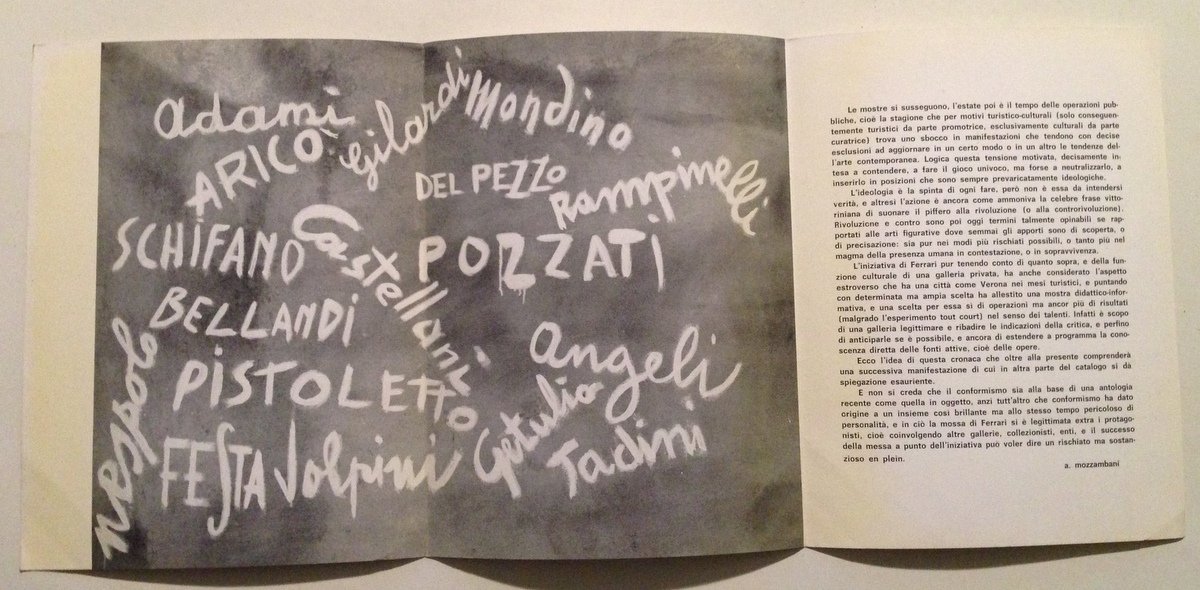 adami
ARICÒ
Gilardi
Mondino
DEL PEZZO
Rampinelli
SCHIFANO
Castellani
POZZATI
BELLANDI
nespolo
PISTOLETTO
angeli
Getulio
FESTA
Volpini
Tadini
Le mostre si susseguono, l'estate poi è il tempo delle operazioni pub-
bliche, cioè la stagione che per motivi turistico-culturali (solo conseguen-
temente turistici da parte promotrice, esclusivamente culturali da parte
curatrice) trova uno sbocco in manifestazioni che tendono con decise
esclusioni ad aggiornare in un certo modo o in un altro le tendenze del-
l'arte contemporanea. Logica questa tensione motivata, decisamente in-
tesa a contendere, a fare il gioco univoco, ma forse a neutralizzarlo, a
inserirlo in posizioni che sono sempre prevaricatamente ideologiche.
L'ideologia è la spinta di ogni fare, però non è essa da intendersi
verità, e altresì l'azione è ancora come ammoniva la celebre frase vitto-
riniana di suonare il piffero alla rivoluzione (o alla controrivoluzione).
Rivoluzione e contro sono poi oggi termini talmente opinabili se rap-
portati alle arti figurative dove semmai gli apporti sono di scoperta, o
di precisazione: sia pur nei modi più rischiati possibili, o tanto più nel
magma della presenza umana in contestazione, o in sopravvivenza.
L'iniziativa di Ferrari pur tenendo conto di quanto sopra, e della fun-
zione culturale di una galleria privata, ha anche considerato l'aspetto
estroverso che ha una città come Verona nei mesi turistici, e puntando
con determinata ma ampia scelta ha allestito una mostra didattico-infor-
mativa, e una scelta per essa sì di operazioni ma ancor più di risultati
(malgrado l'esperimento tout court) nel senso dei talenti. Infatti è scopo
di una galleria legittimare e ribadire le indicazioni della critica, e perfino
di anticiparle se è possibile, e ancora di estendere a programma la cono-
scenza diretta delle fonti attive, cioè delle opere.
Ecco l'idea di questa cronaca che oltre alla presente comprenderà
una successiva manifestazione di cui in altra parte del catalogo si dà
spiegazione esauriente.
E non si creda che il conformismo sia alla base di una antologia
recente come quella in oggetto, anzi tutt'altro che conformismo ha dato
origine a un insieme così brillante ma allo stesso tempo pericoloso di
personalità, e in ciò la mossa di Ferrari si è legittimata extra i protago-
nisti, cioè coinvolgendo altre gallerie, collezionisti, enti, e il successo
della messa a punto dell'iniziativa può voler dire un rischiato ma sostan-
zioso en plein.
a. mozzambani